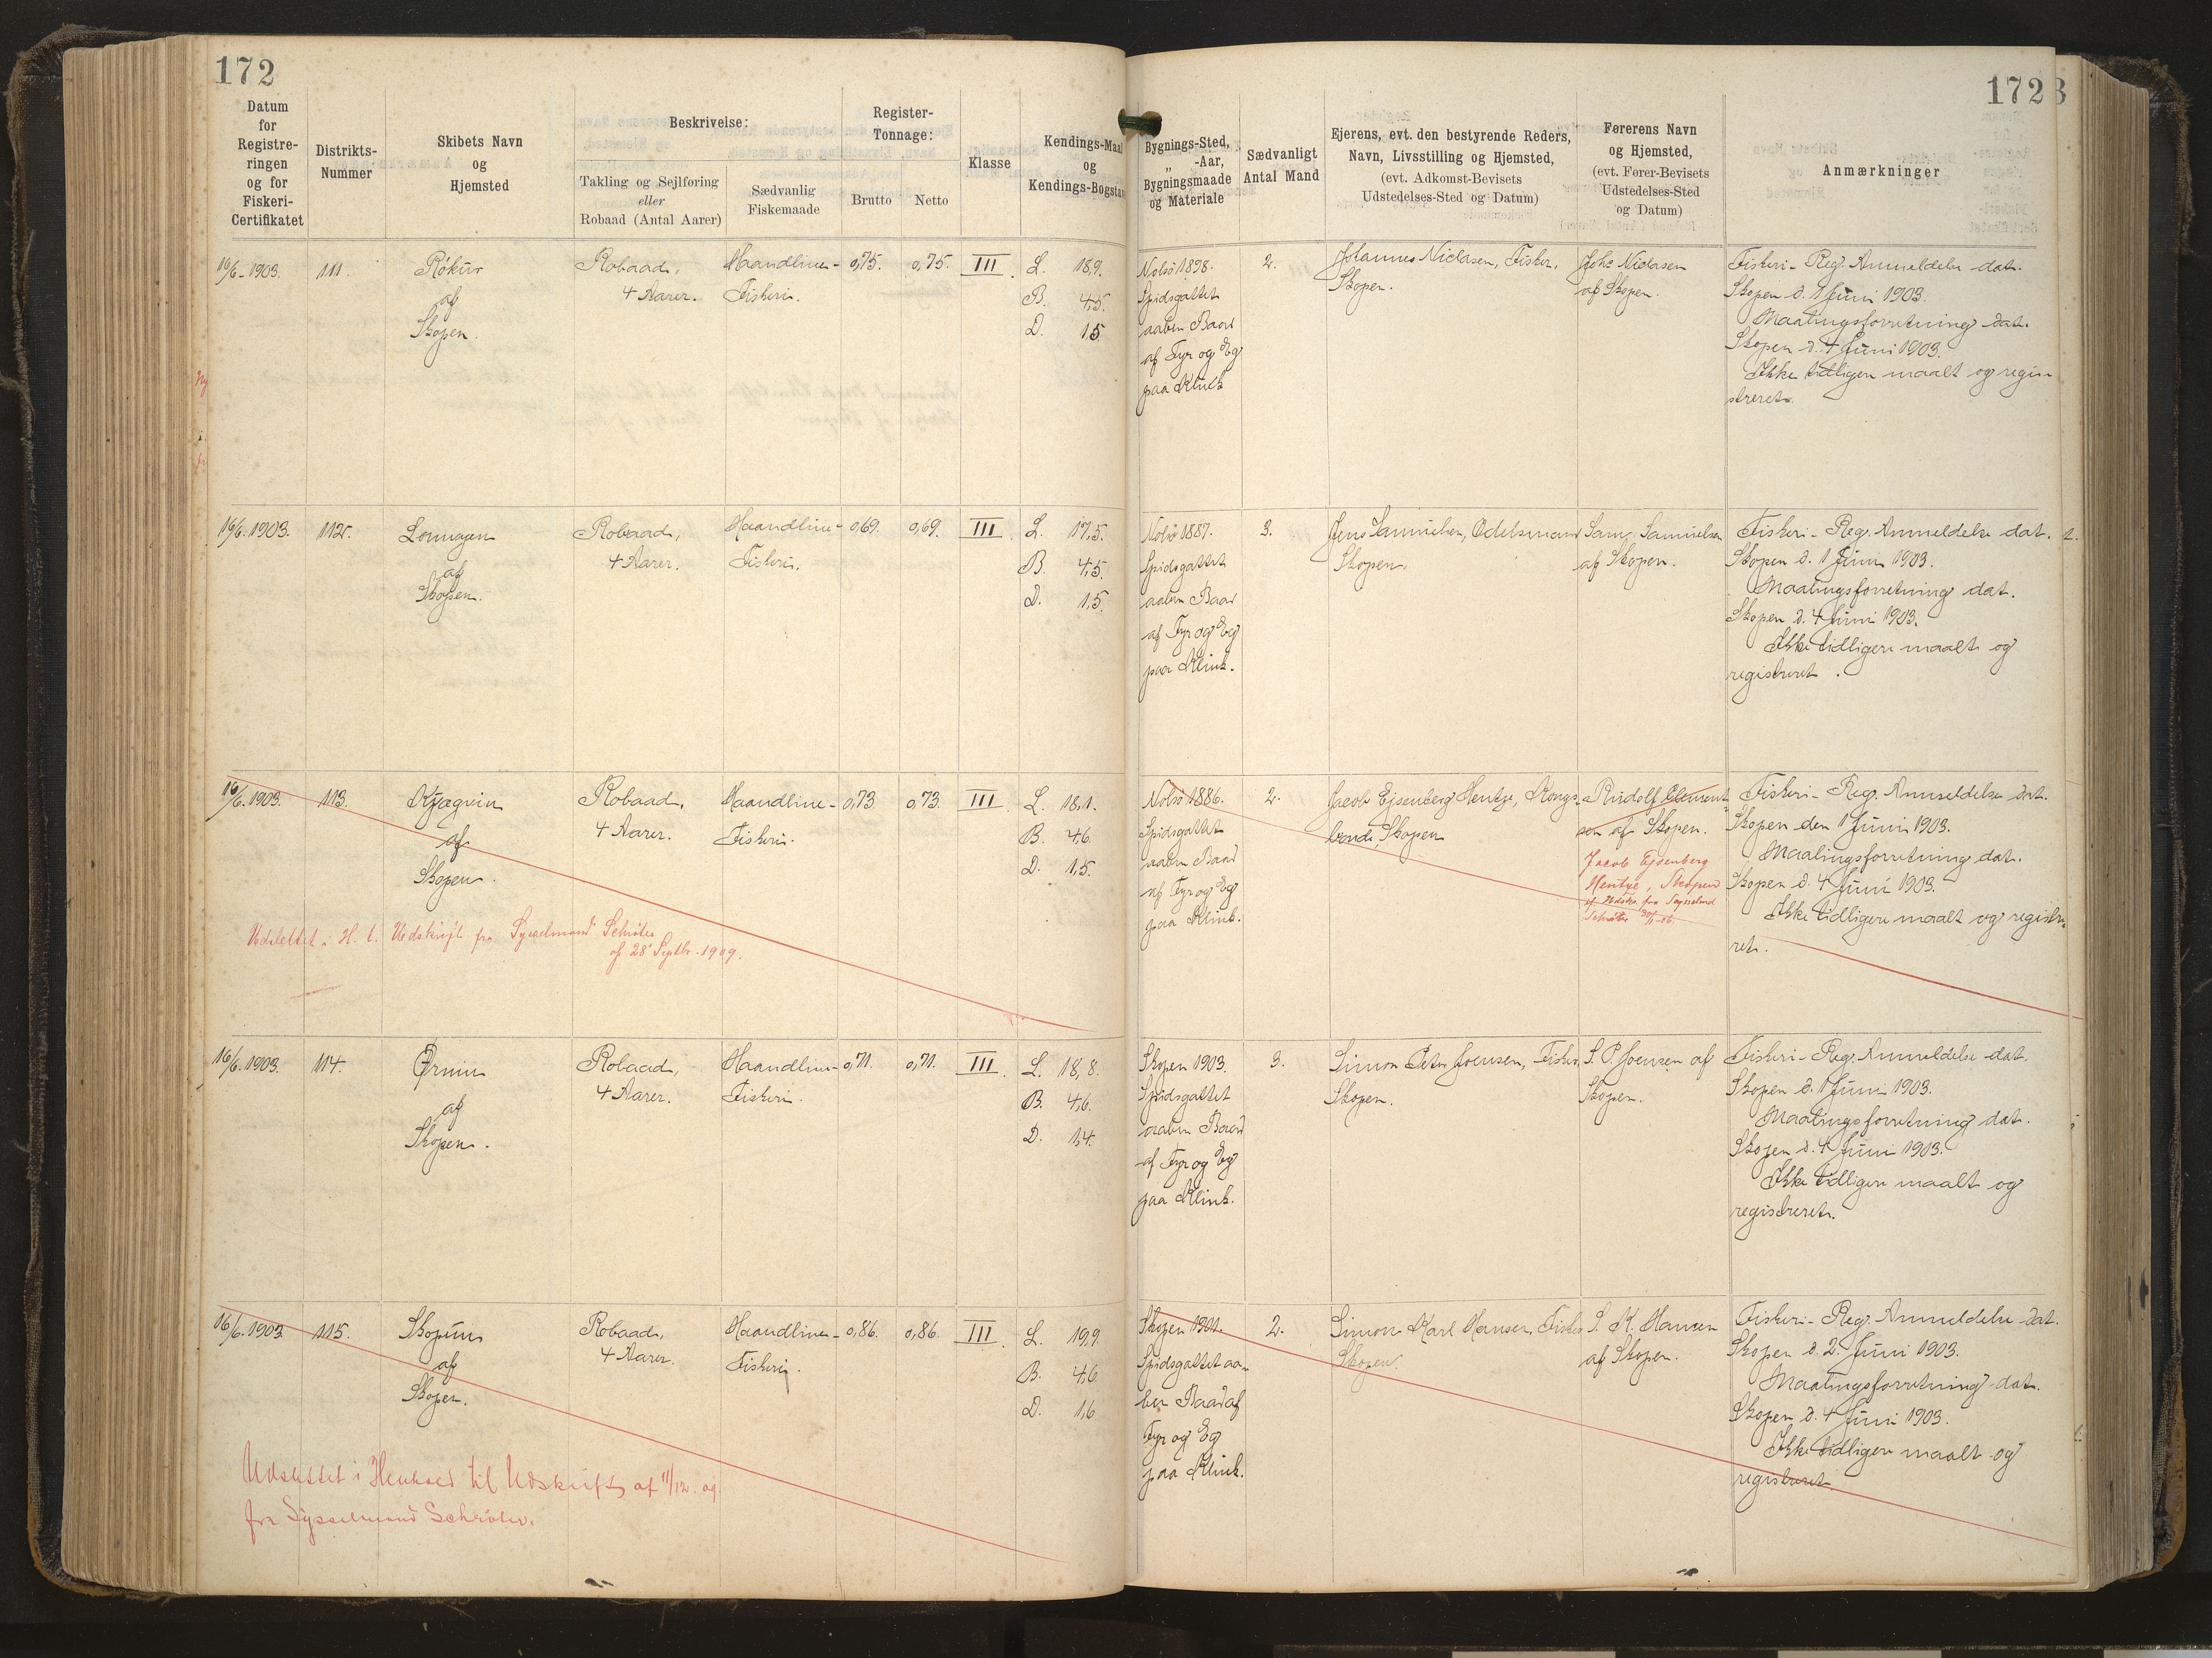 172
Datum
for
Registre-
ringen
og for
Fiskeri-
Certifikatet
Distrikts-
Nummer
Skibets Navn
og
Hjemsted
Beskrivelse:
Takling og Sejlføring
eller
Robaad (Antal Aarer)
Sædvanlig
Fiskemaade
Register-
Tonnage:
Brutto
Netto
Klasse
Kendings-Maal
og
Kendings-Bogstav
16/6-1903.
111.
Rókur
af
Skopen.
Robaad,
4 Aarer.
Haandline-
Fiskeri.
0,75.
0,75.
III.
L. 18,9.
B. 4,5.
D. 1,5
16/6.1903.
112.
af
Skopen.
Robaad,
4 Aarer.
Haandline-
Fiskeri.
0,69.
0,69.
III.
L. 17,5.
B. 4,5.
D. 1,5.
16/6.1903.
113.
Kjægvin
af
Skopen.
Robaad,
4 Aarer.
Haandline-
Fiskeri.
0,73.
0,73.
III.
L. 18,1.
B. 4,6.
D. 1,5.
Udslettet i H. t. Udskrift fra Sysselmand Schrøter
af 28' Septbr. 1909.
16/6.1903.
114.
Ørnin
af
Skopen.
Robaad,
4 Aarer.
Haandline-
Fiskeri.
0,71.
0,71.
III.
L. 18,8.
B. 4,6.
D. 1,4.
16/6.1903
115.
Skopun
af
Skopen.
Robaad,
4 Aarer.
Haandline-
Fiskeri.
0,86.
0,86.
III.
L. 19,9.
B. 4,6
D. 1,6
Udslettet i Henhold til Udskrift af 11/12. 09
fra Sysselmand Schrøter.
172
3
Bygnings-Sted,
„ -Aar,
Bygningsmaade
og Materiale
Sædvanligt
Antal Mand
Ejerens, evt. den bestyrende Reders,
Navn, Livsstilling og Hjemsted,
(evt. Adkomst-Bevisets
Udstedelses-Sted og Datum)
Førerens Navn
og Hjemsted,
(evt. Fører-Bevisets
Udstedelses-Sted
og Datum)
Anmærkninger
Nolsö 1898.
Spidsgattet
aaben Baad
af Fyr og Eg
paa Klink
2.
Johannes Niclasen, Fisker,
Skopen.
Johs Niclasen
af Skopen.
Fiskeri-Reg. Anmeldelse dat.
Skopen d. 1 Juni 1903.
Maalingsforretning dat.
Skopen d. 4 Juni 1903.
Ikke tidligere maalt og regi-
streret.
Nolsö 1887.
Spidsgattet
aaben Baad
af Fyr og Eg
paa Klink.
3.
Jens Samuelsen, Odelsmand
Skopen.
Sam. Samuelsen
af Skopen.
Fiskeri-Reg. Anmeldelse dat.
Skopen d. 1 Juni 1903.
Maalingsforretning dat.
Skopen d. 4 Juni 1903.
Ikke tidligere maalt og
registreret.
Nolsö 1886.
Spidsgattet
aaben Baad
af Fyr og Eg
paa Klink.
2.
Jacob Ejsenberg Hentze, Kongs-
bonde, Skopen
Rudolf Clement-
sen af Skopen.
Jacob Ejsenberg
Hentze, Skopen
af Udskr. fra Sysselmd
Schrøter 30/1-06.
Fiskeri-Reg. Anmeldelse dat.
Skopen den 1 Juni 1903.
Maalingsforretning dat.
Skopen d. 4 Juni 1903.
Ikke tidligere maalt og registre-
ret.
Skopen 1903.
Spidsgattet
aaben Baad
af Fyr og Eg
paa Klink.
3.
Simon Peter Joensen, Fisker,
Skopen.
S. P. Joensen af
Skopen.
Fiskeri-Reg. Anmeldelse dat.
Skopen d. 1 Juni 1903.
Maalingsforretning dat.
Skopen d. 4 Juni 1903.
Ikke tidligere maalt og
registreret.
Skopen 1901.
Spidsgattet aa-
ben Baad af
Fyr og Eg
paa Klink.
2.
Simon Karl Hansen, Fisker
Skopen.
S. K. Hansen
af Skopen.
Fiskeri-Reg. Anmeldelse dat.
Skopen d. 2. Juni 1903.
Maalingsforretning dat.
Skopen d. 4 Juni 1903.
Ikke tidligere maalt og
registreret.